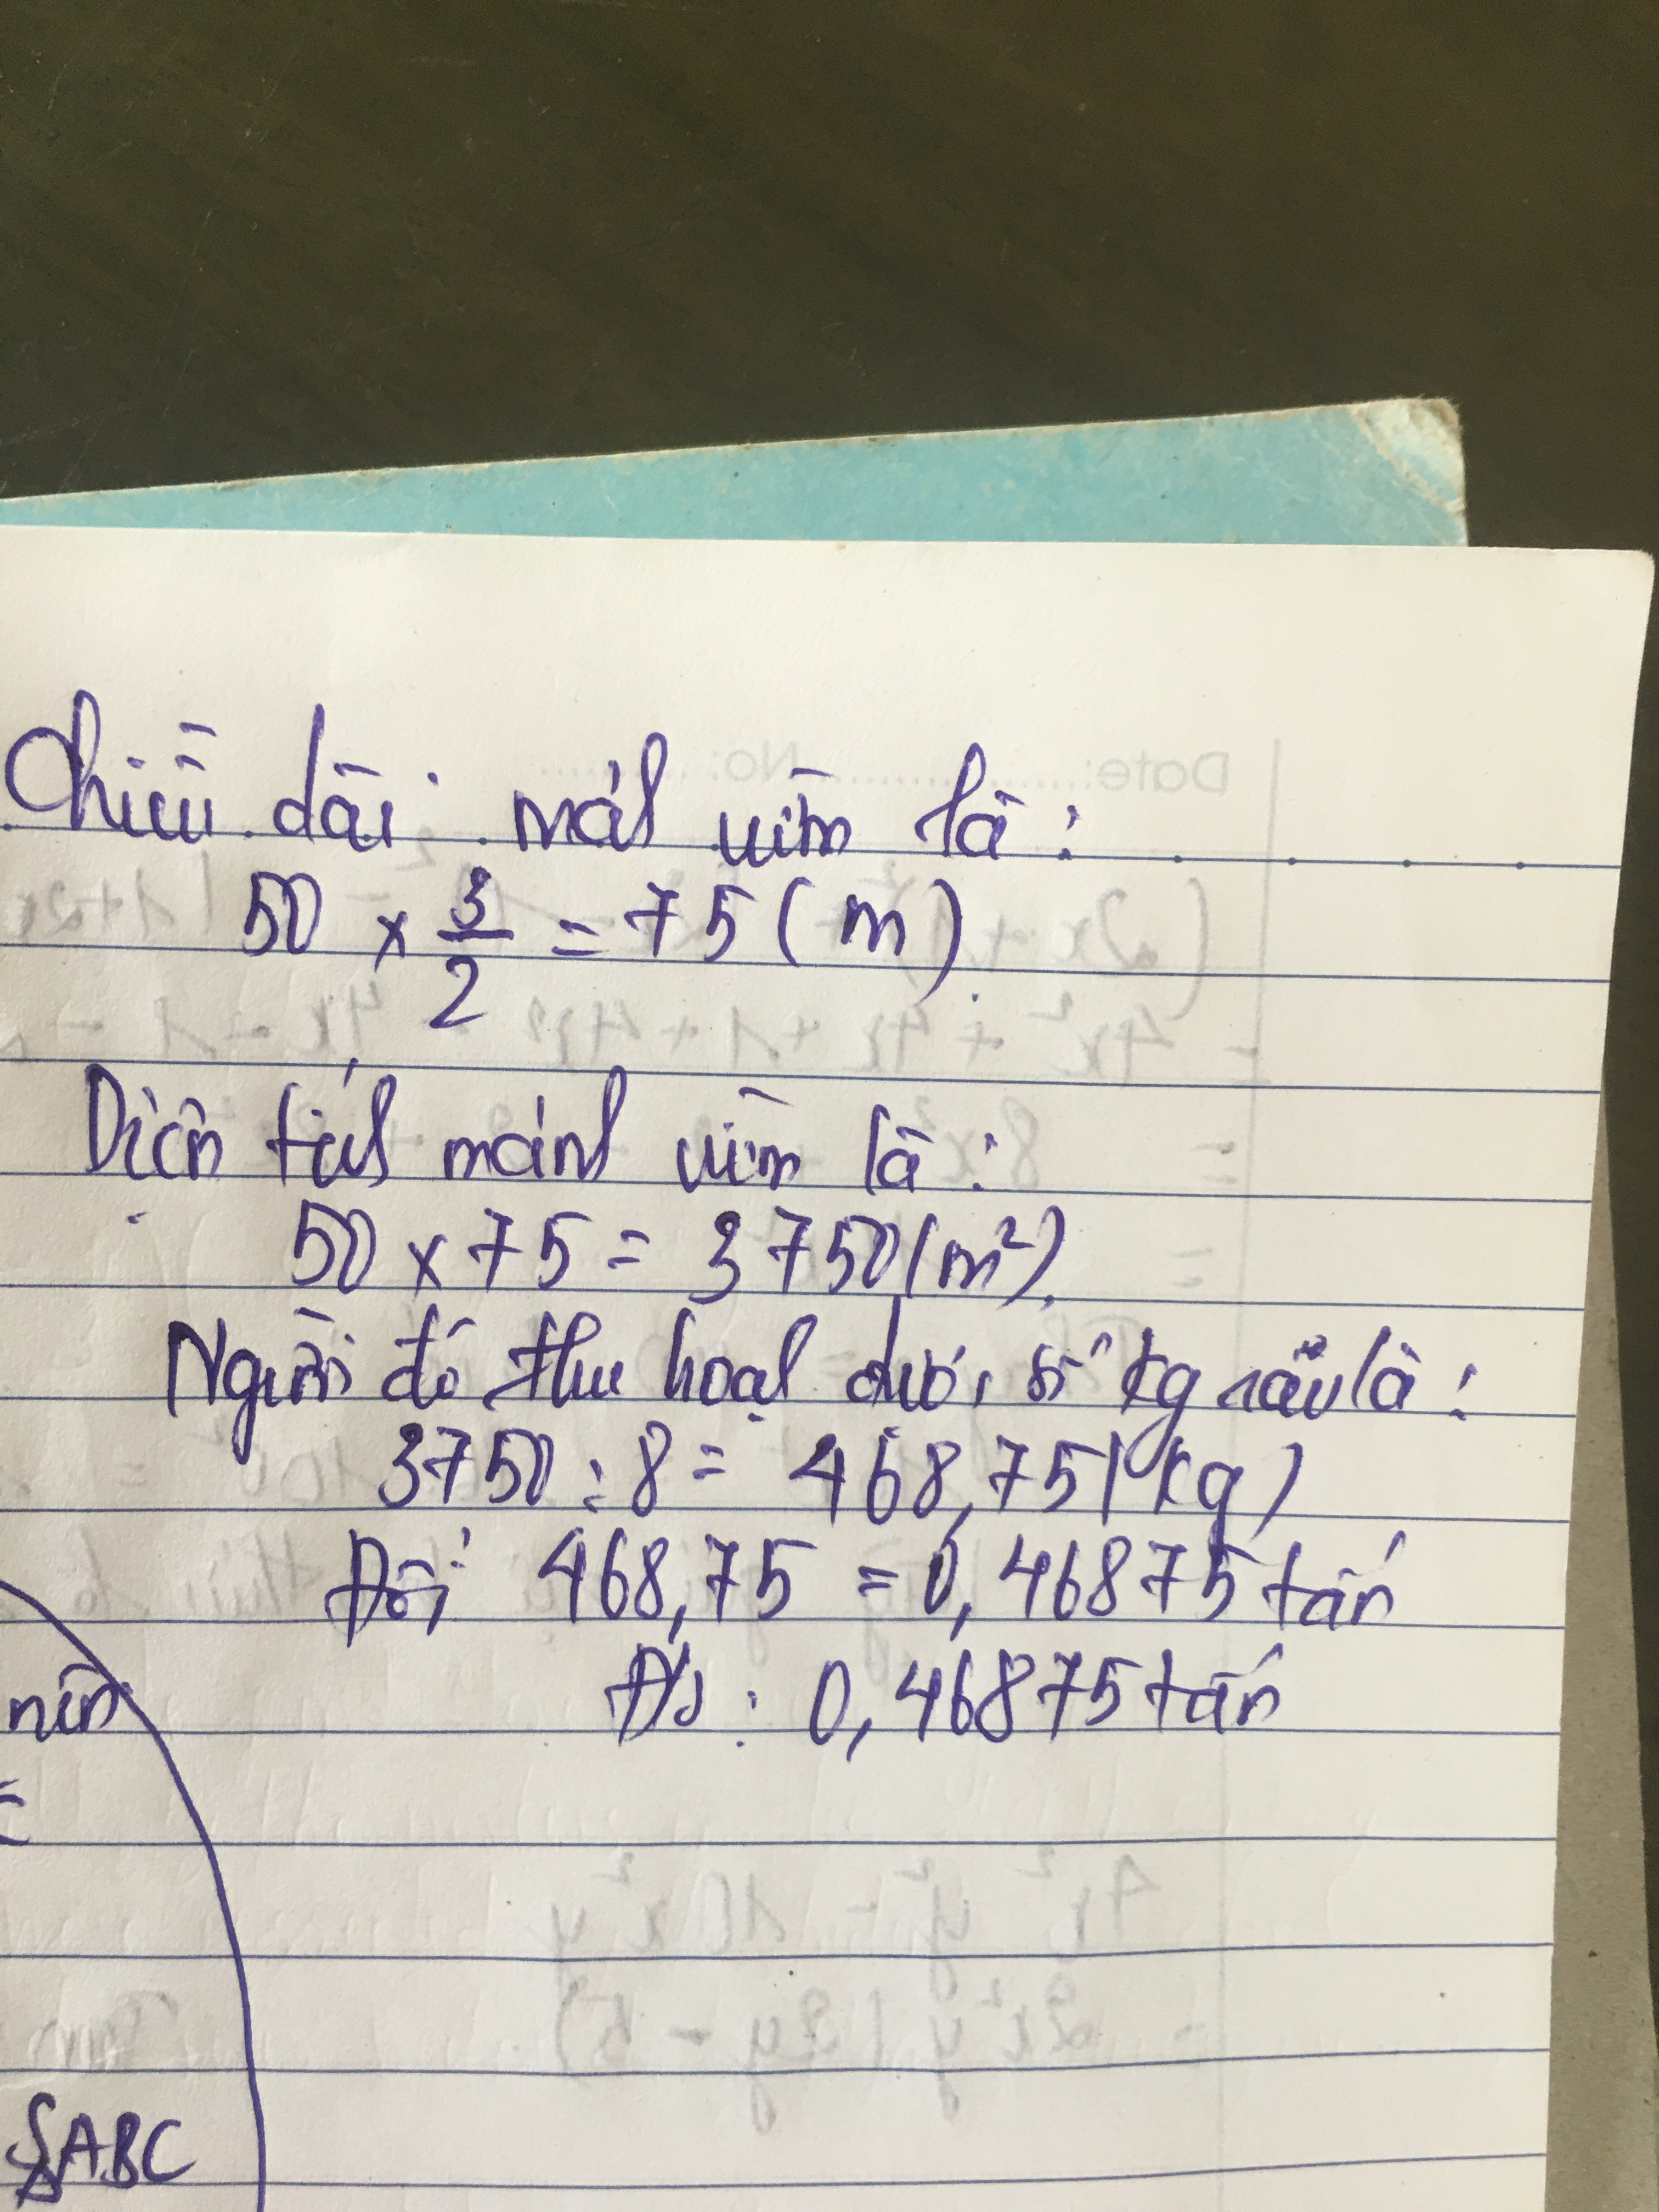 Chiều dài mảnh vườn là:
50 × 3/2 = 75 (m).
Diện tích mảnh vườn là:
50 × 75 = 3750 (m²).
Người đó thu hoạch được số kg rau là:
3750 : 8 = 468,75 (kg)
Đổi 468,75 = 0,46875 tấn
Đ/s: 0,46875 tấn
=
S△ABC